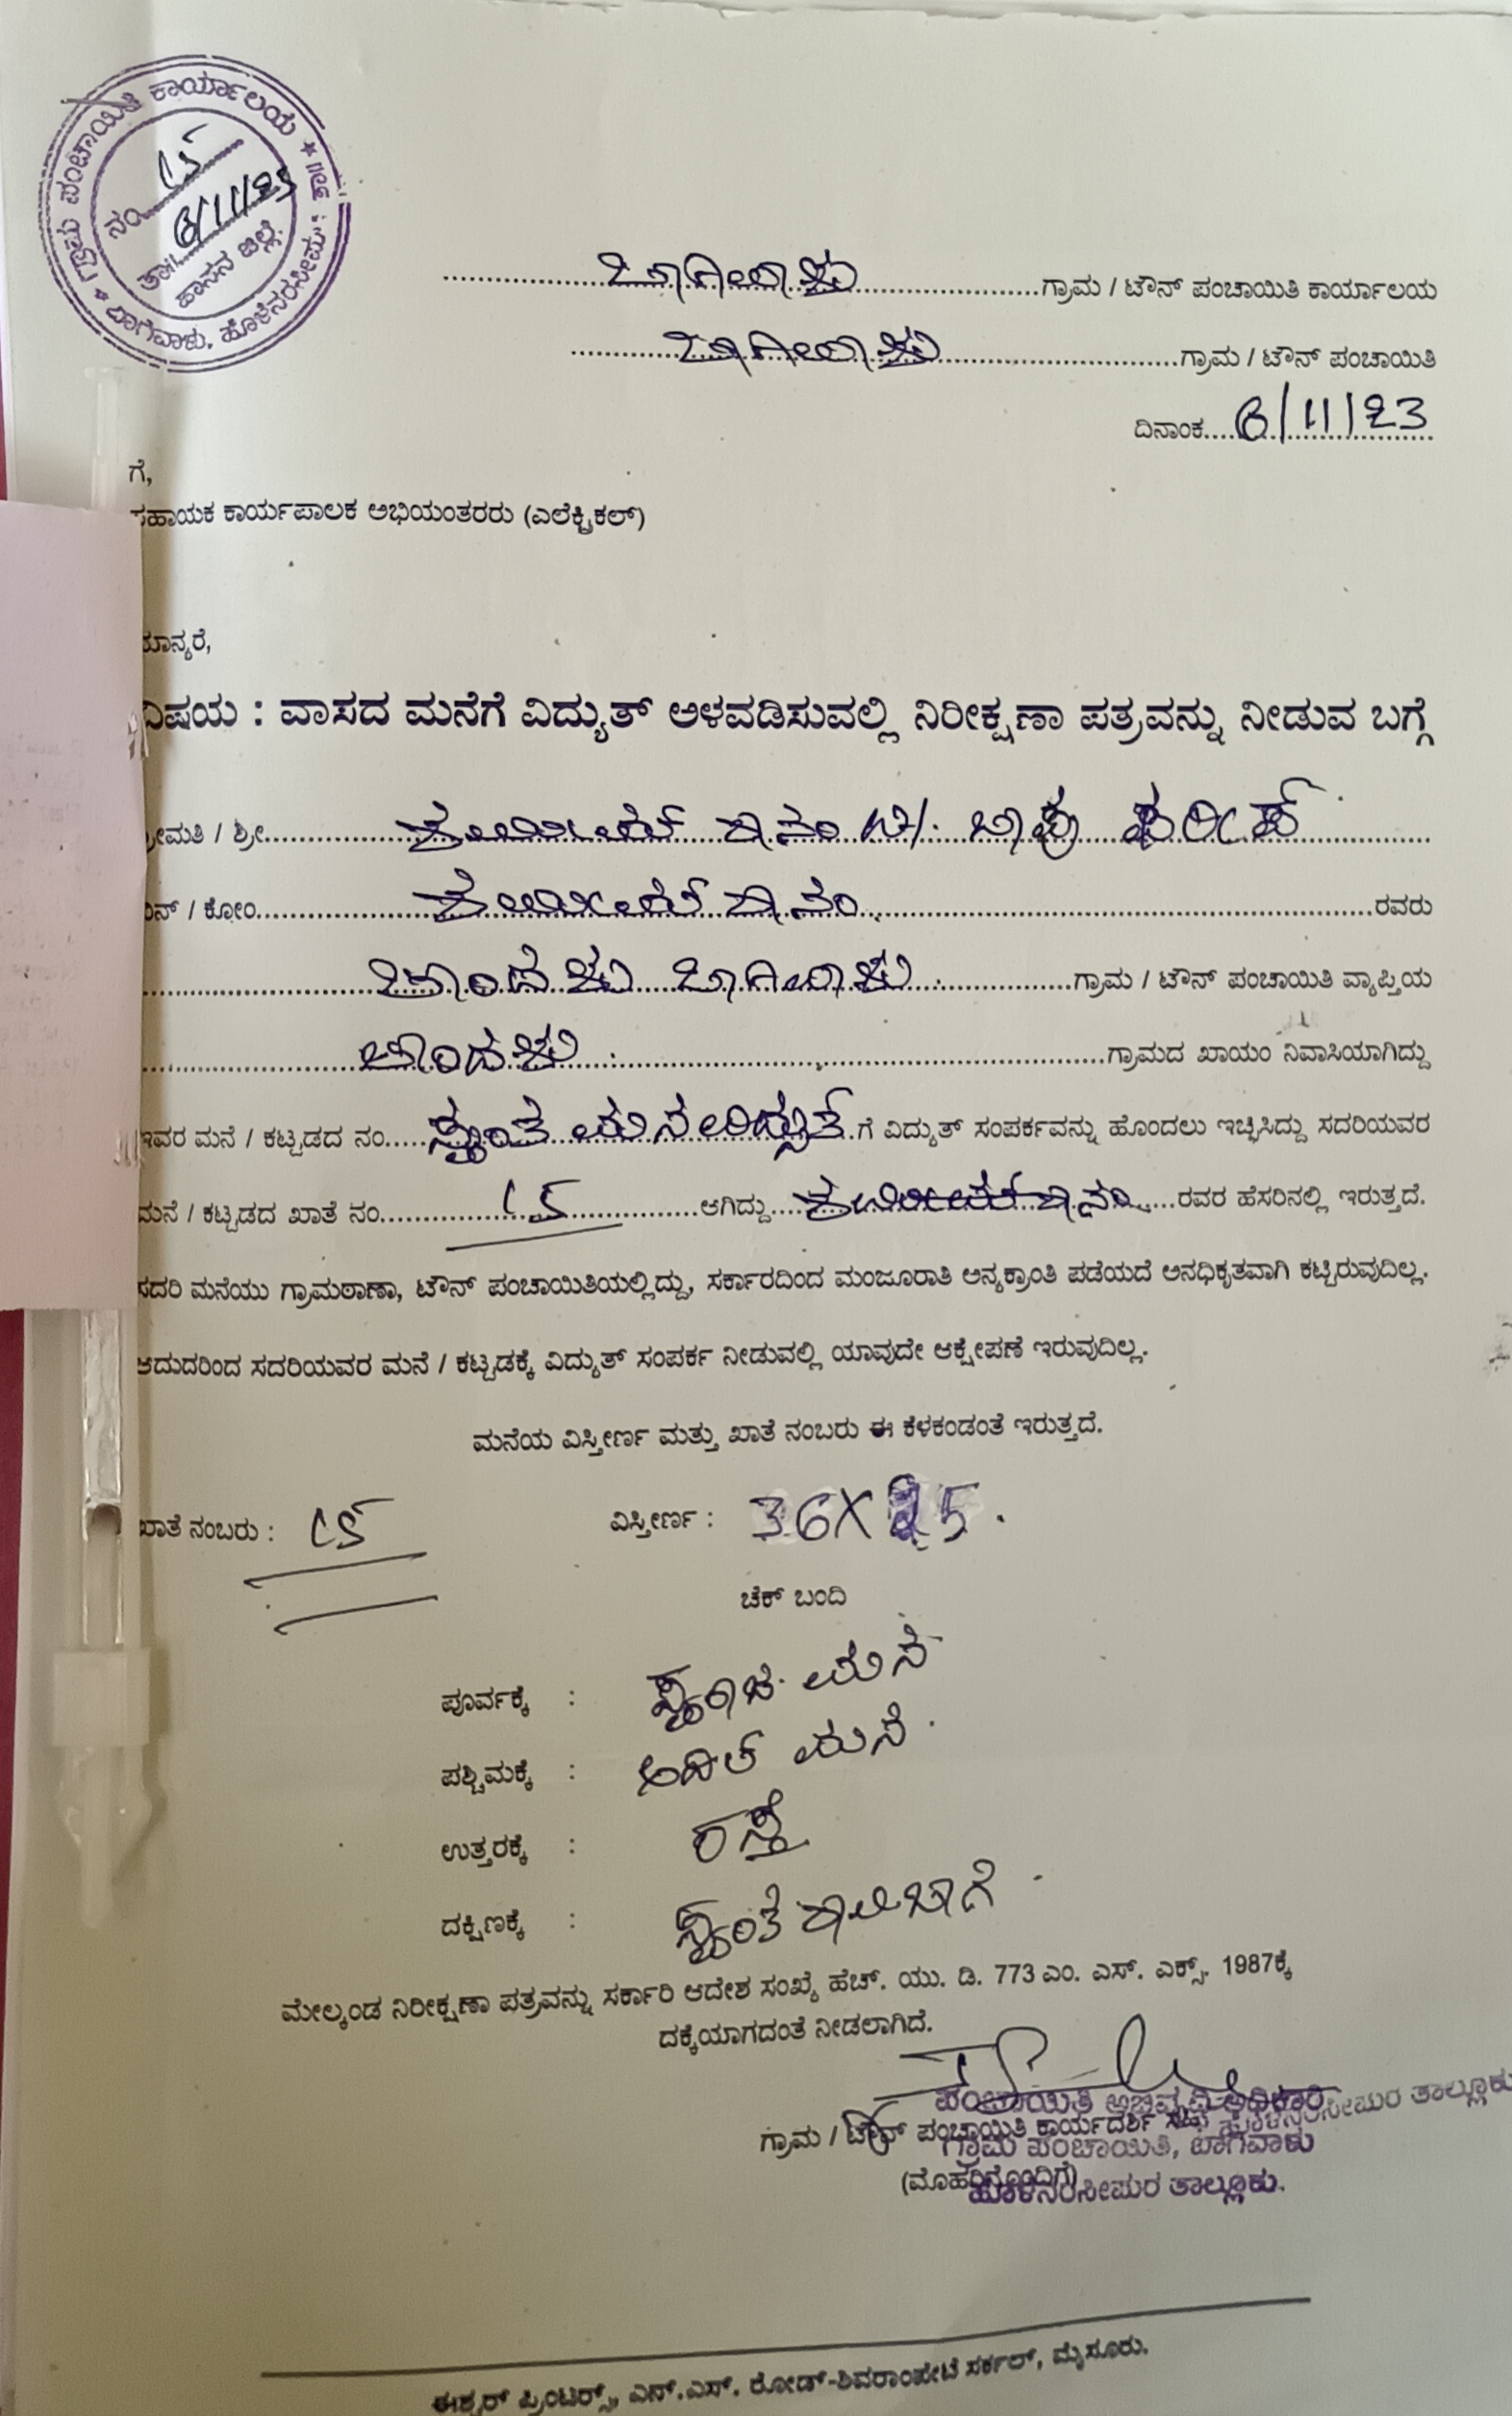 ಗ್ರಾಮ ಪಂಚಾಯಿತಿ ಕಾರ್ಯಾಲಯ
ಬಾಗೇವಾಳು, ಹೊಳೆನರಸೀಪುರ
ನಂ 15
ತಾ॥ 6/11/23
ಹಾಸನ ಜಿಲ್ಲೆ.
ಬಾಗೇವಾಳು ಗ್ರಾಮ / ಟೌನ್ ಪಂಚಾಯಿತಿ ಕಾರ್ಯಾಲಯ
ಬಾಗೇವಾಳು ಗ್ರಾಮ / ಟೌನ್ ಪಂಚಾಯಿತಿ
ದಿನಾಂಕ 6/11/23
ಗೆ,
ಸಹಾಯಕ ಕಾರ್ಯಪಾಲಕ ಅಭಿಯಂತರರು (ಎಲೆಕ್ಟ್ರಿಕಲ್)
ಮಾನ್ಯರೆ,
ವಿಷಯ : ವಾಸದ ಮನೆಗೆ ವಿದ್ಯುತ್ ಅಳವಡಿಸುವಲ್ಲಿ ನಿರೀಕ್ಷಣಾ ಪತ್ರವನ್ನು ನೀಡುವ ಬಗ್ಗೆ
ಶ್ರೀಮತಿ / ಶ್ರೀ
ಬಿನ್ / ಕೋಂ ರವರು
ಬಾಗೇವಾಳು ಗ್ರಾಮ / ಟೌನ್ ಪಂಚಾಯಿತಿ ವ್ಯಾಪ್ತಿಯ
ಗ್ರಾಮದ ಖಾಯಂ ನಿವಾಸಿಯಾಗಿದ್ದು
ಇವರ ಮನೆ / ಕಟ್ಟಡದ ನಂ ಗೆ ವಿದ್ಯುತ್ ಸಂಪರ್ಕವನ್ನು ಹೊಂದಲು ಇಚ್ಛಿಸಿದ್ದು ಸದರಿಯವರ
ಮನೆ / ಕಟ್ಟಡದ ಖಾತೆ ನಂ 15 ಆಗಿದ್ದು ರವರ ಹೆಸರಿನಲ್ಲಿ ಇರುತ್ತದೆ.
ಸದರಿ ಮನೆಯು ಗ್ರಾಮಠಾಣಾ, ಟೌನ್ ಪಂಚಾಯಿತಿಯಲ್ಲಿದ್ದು, ಸರ್ಕಾರದಿಂದ ಮಂಜೂರಾತಿ ಅನ್ಯಕ್ರಾಂತಿ ಪಡೆಯದೆ ಅನಧಿಕೃತವಾಗಿ ಕಟ್ಟಿರುವುದಿಲ್ಲ.
ಆದುದರಿಂದ ಸದರಿಯವರ ಮನೆ / ಕಟ್ಟಡಕ್ಕೆ ವಿದ್ಯುತ್ ಸಂಪರ್ಕ ನೀಡುವಲ್ಲಿ ಯಾವುದೇ ಆಕ್ಷೇಪಣೆ ಇರುವುದಿಲ್ಲ.
ಮನೆಯ ವಿಸ್ತೀರ್ಣ ಮತ್ತು ಖಾತೆ ನಂಬರು ಈ ಕೆಳಕಂಡಂತೆ ಇರುತ್ತದೆ.
ಖಾತೆ ನಂಬರು : 15 ವಿಸ್ತೀರ್ಣ : 36X25.
ಚೆಕ್ ಬಂದಿ
ಪೂರ್ವಕ್ಕೆ : ಮನೆ
ಪಶ್ಚಿಮಕ್ಕೆ : ಮನೆ
ಉತ್ತರಕ್ಕೆ : ರಸ್ತೆ
ದಕ್ಷಿಣಕ್ಕೆ : ಸ್ವಂತ ಖಾಲಿಜಾಗೆ
ಮೇಲ್ಕಂಡ ನಿರೀಕ್ಷಣಾ ಪತ್ರವನ್ನು ಸರ್ಕಾರಿ ಆದೇಶ ಸಂಖ್ಯೆ ಹೆಚ್. ಯು. ಡಿ. 773 ಎಂ. ಎಸ್. ಎಕ್ಸ್. 1987ಕ್ಕೆ
ದಕ್ಕೆಯಾಗದಂತೆ ನೀಡಲಾಗಿದೆ.
ಪಂಚಾಯಿತಿ ಅಭಿವೃದ್ಧಿ ಅಧಿಕಾರಿ
ಗ್ರಾಮ / ಟೌನ್ ಪಂಚಾಯಿತಿ ಕಾರ್ಯದರ್ಶಿ ಸಹಿ
ಗ್ರಾಮ ಪಂಚಾಯಿತಿ, ಬಾಗೇವಾಳು
(ಮೊಹರಿನೊಂದಿಗೆ)
ಹೊಳೆನರಸೀಪುರ ತಾಲ್ಲೂಕು.
ಈಶ್ವರ್ ಪ್ರಿಂಟರ್ಸ್, ಎನ್.ಎಸ್. ರೋಡ್-ಶಿವರಾಂಪೇಟೆ ಸರ್ಕಲ್, ಮೈಸೂರು.